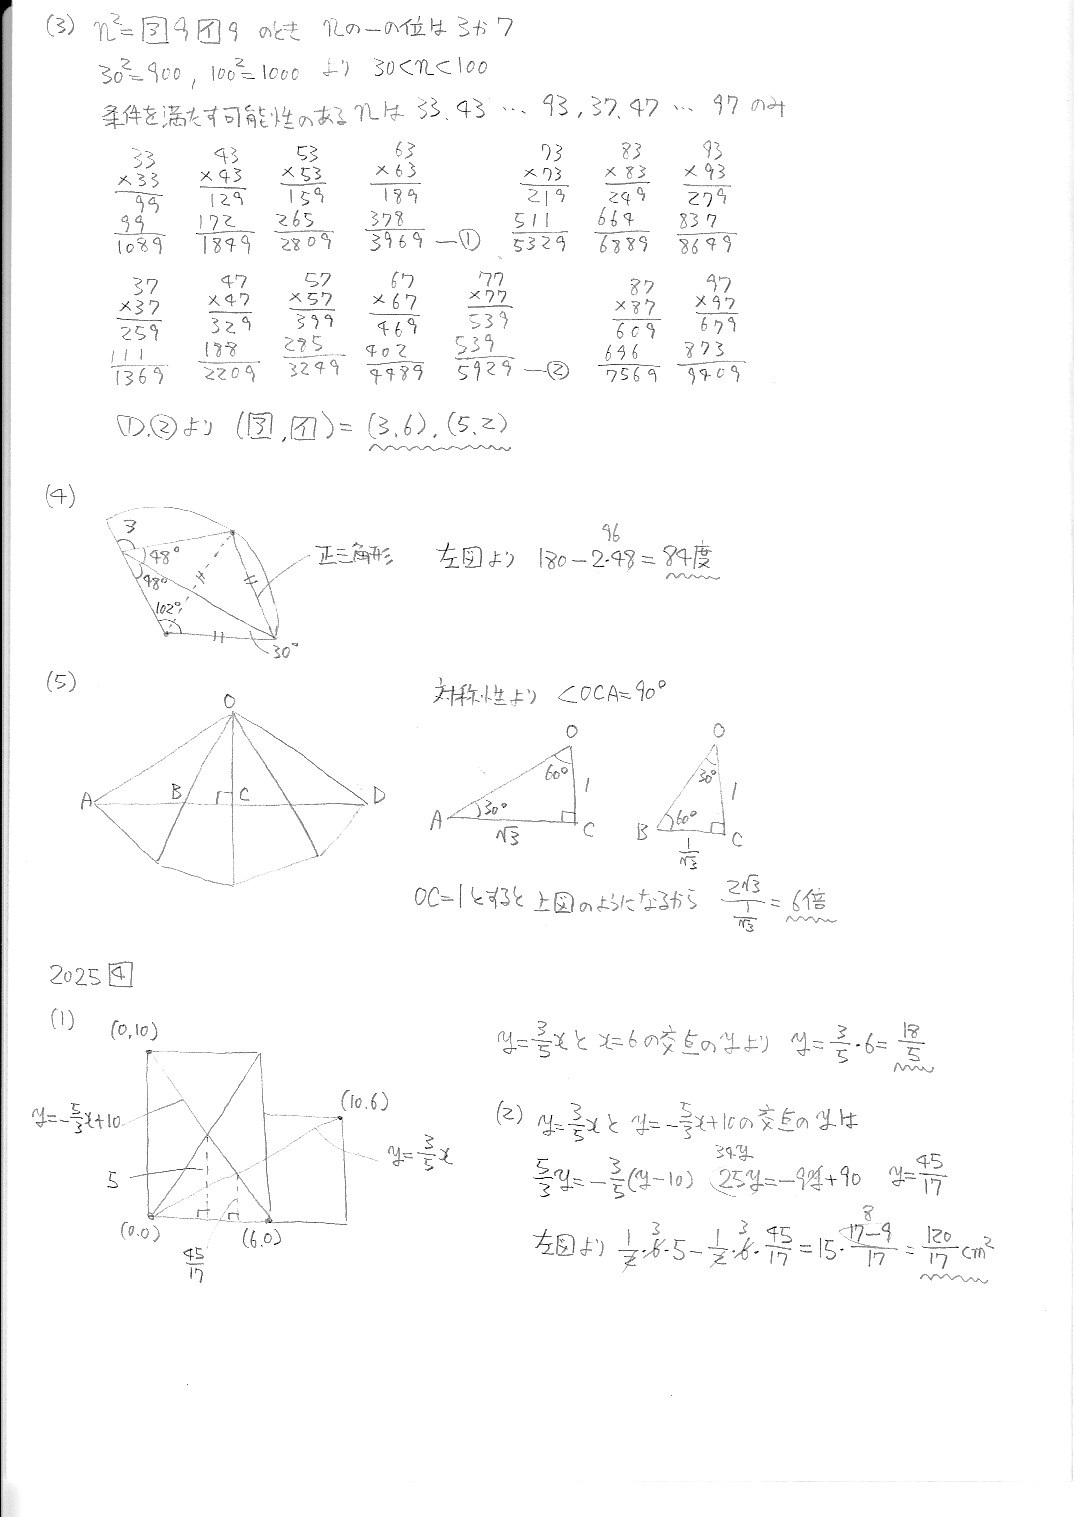 (3) n²=ア9イ9 のとき nの一の位は3か7
30²=900, 100²=1000 より 30<n<100
条件を満たす可能性のあるnは 33,43 … 93,37,47 … 97のみ
33 43 53 63 73 83 93
×33 ×43 ×53 ×63 ×73 ×83 ×93
99 129 159 189 219 249 279
99 172 265 378 511 664 837
1089 1849 2809 3969 ―① 5329 6889 8649
37 47 57 67 77 87 97
×37 ×47 ×57 ×67 ×77 ×87 ×97
259 329 399 469 539 609 679
111 188 285 402 539 696 873
1369 2209 3249 4489 5929 ―② 7569 9409
①,②より (ア,イ)=(3,6),(5,2)
(4)
3
48°
48°
102°
30°
正三角形
96
左図より 180-2・48=84度
(5)
対称性より ∠OCA=90°
O
A B C D
O 60° 1 30° A √3 C
O 30° 1 60° B 1/√3 C
OC=1とすると上図のようになるから 2√3/(1/√3)=6倍
2025 4
(1)
(0,10)
y=-5/3x+10
(10,6)
y=3/5x
5
(0,0)
(6,0)
45/17
y=3/5xとx=6の交点のyより y=3/5・6=18/5
(2) y=3/5xとy=-5/3x+10の交点のyは
34y
5/3y=-3/5(y-10) 25y=-9y+90 y=45/17
3 3 8
左図より 1/2・6・5-1/2・6・45/17=15・(17-9)/17=120/17cm²